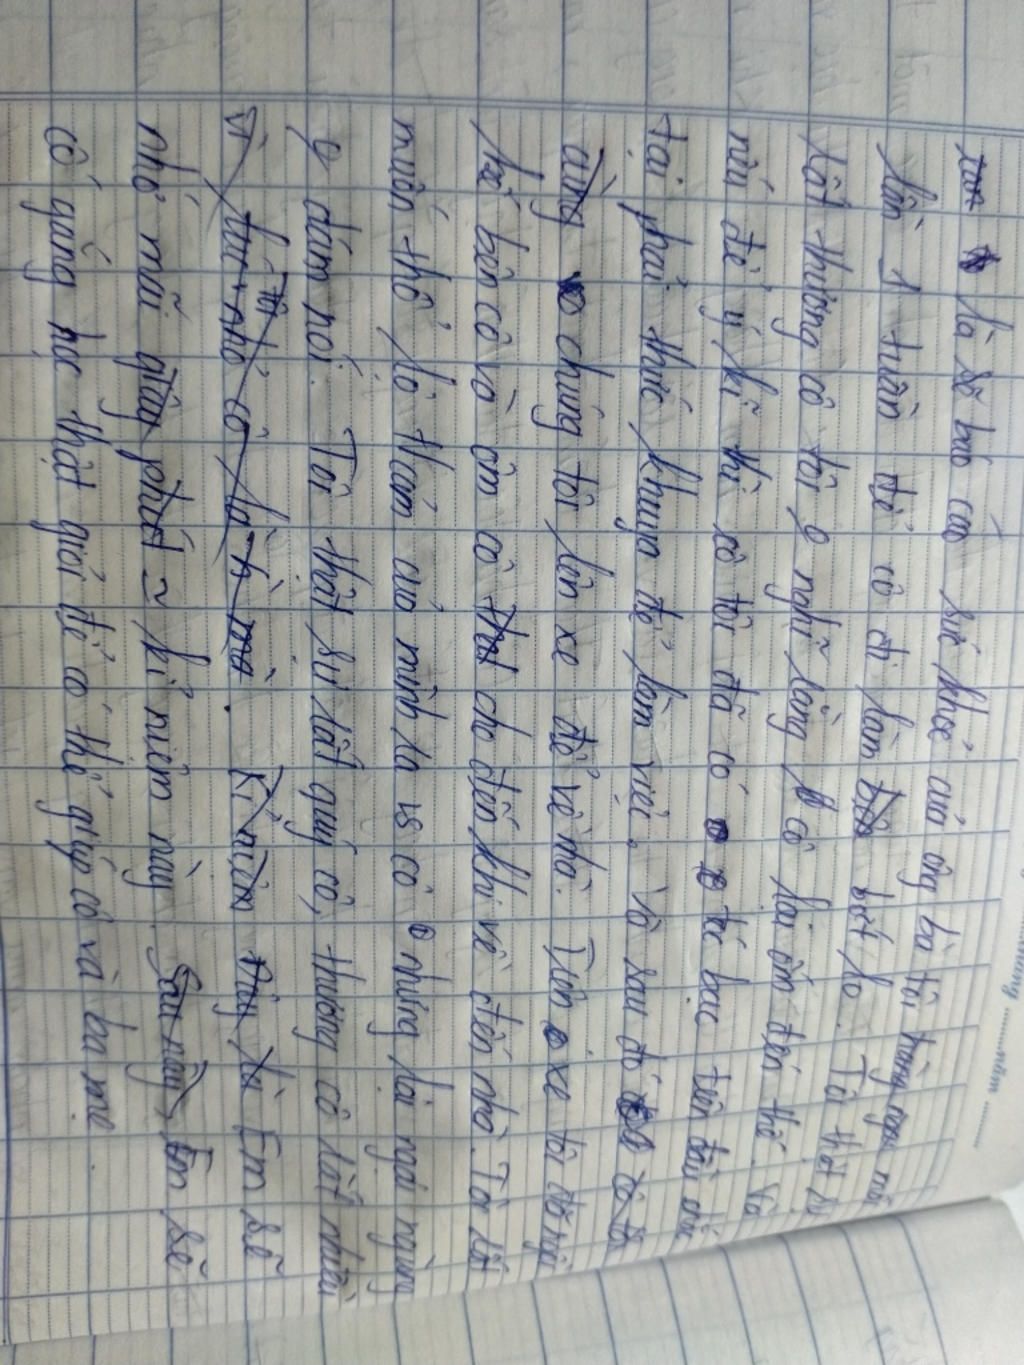 là sẽ báo cáo sức khỏe của ông bà tôi hàng ngày mỗi
lần 1 tuần để cô đi làm bớt lo. Tôi thật sự
rất thương cô tôi ngờ rằng cô lại ốm đến thế. Và
nếu để ý kĩ thì cô tôi đã có tóc bạc trên đầu
phải thức khuya để làm việc. Và sau đó
chúng tôi lên xe để về nhà. Trên xe tôi đã ngồi
kế bên cô và ôm cô cho đến khi về đến nhà. Tôi rất
muốn thổ lộ tâm của mình ra với cô nhưng lại ngại ngùng
k dám nói. Tôi thật sự rất quý cô, thương cô rất nhiều
Em sẽ
nhớ mãi kỉ niệm này. Em sẽ
cố gắng học thật giỏi để có thể giúp cô và ba mẹ.